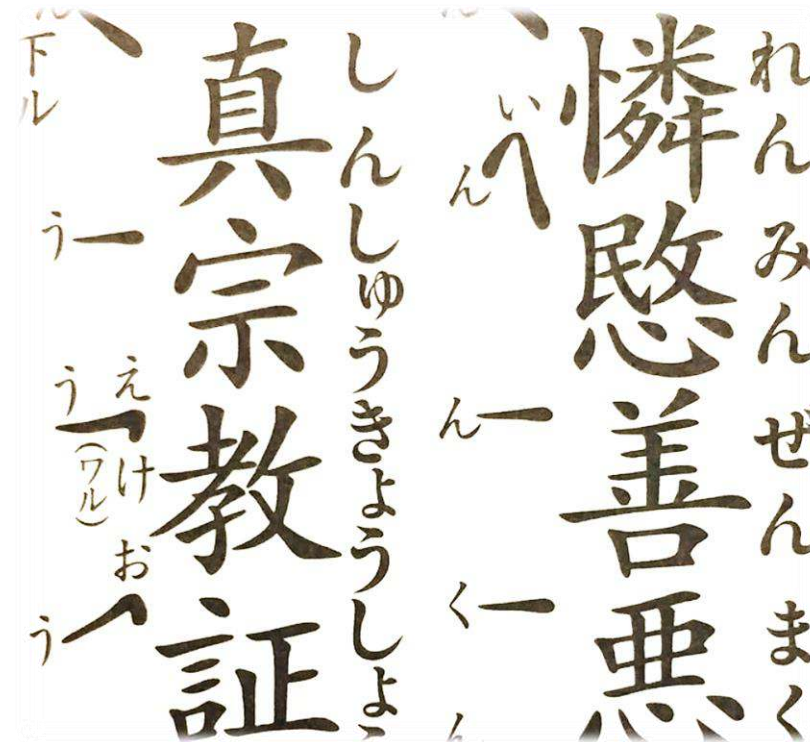 れんみんぜんまく
憐愍善悪
い
ん
ん
く
しんしゅうきょうしょ
真宗教証
下ル
う
え
う
け
(ワル)
お
う